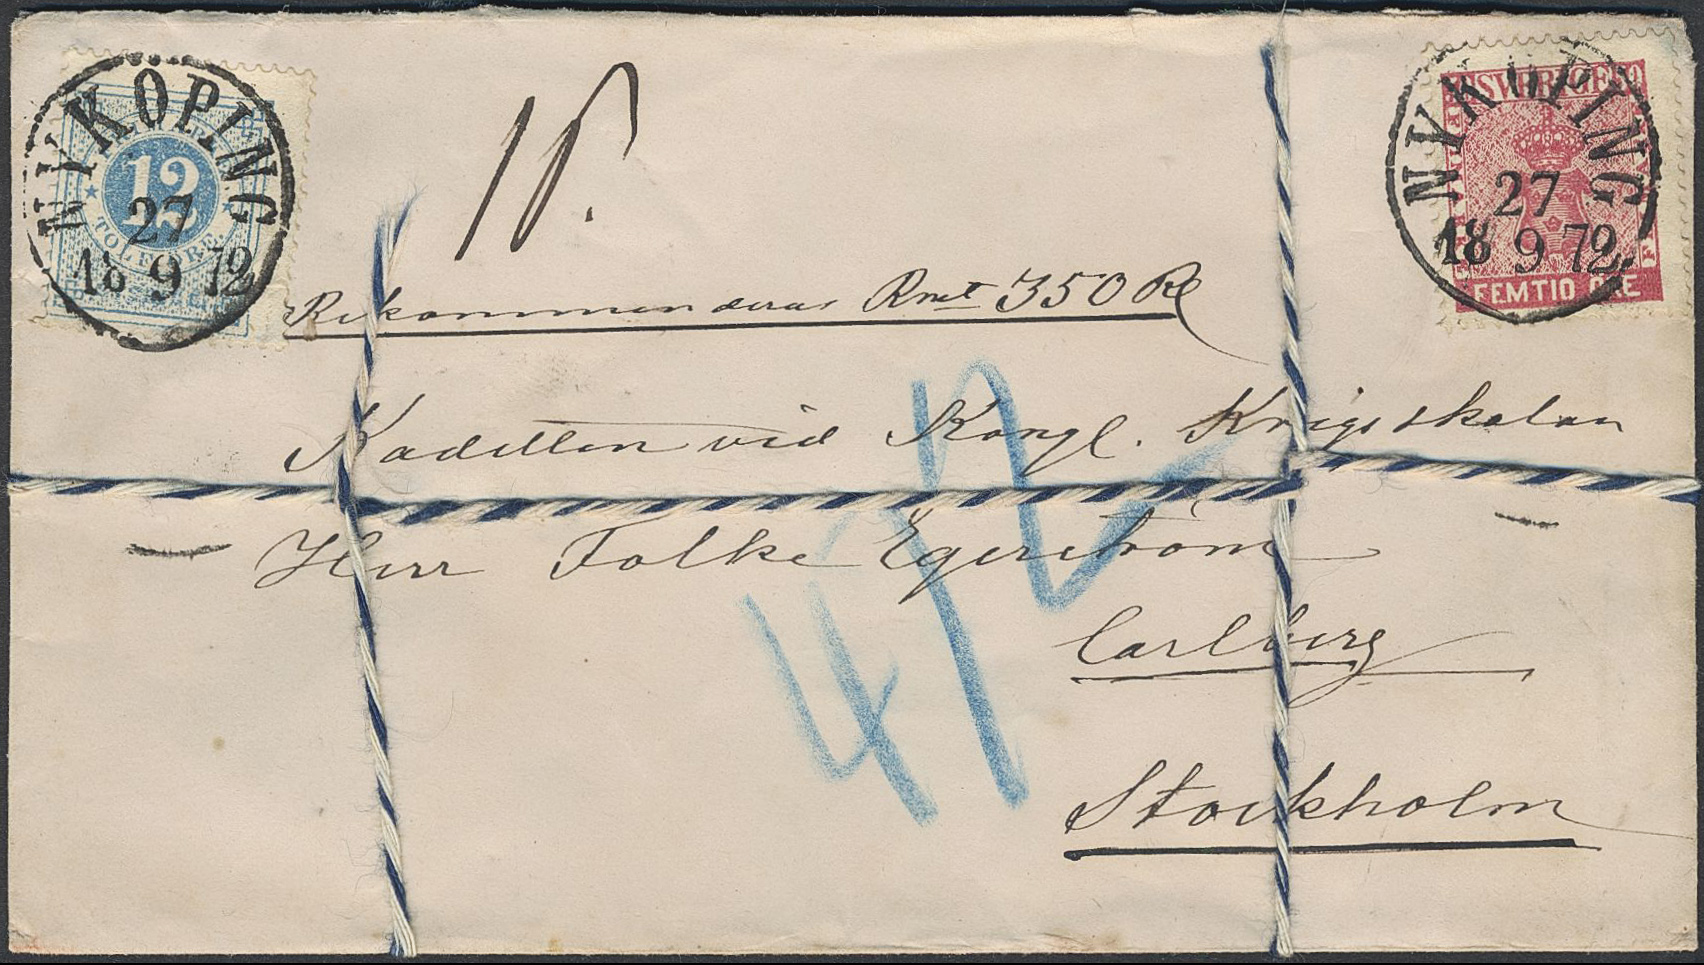 NYKÖPING
27
18 9 72
12
TOLF ÖRE.
NYKÖPING
27
18 9 72
SVERIGE
FEMTIO ÖRE
Rekommenderas Rmt 350 R
Kadetten vid Kongl. Krigsskolan
Herr Folke Egerström
Carlberg
Stockholm